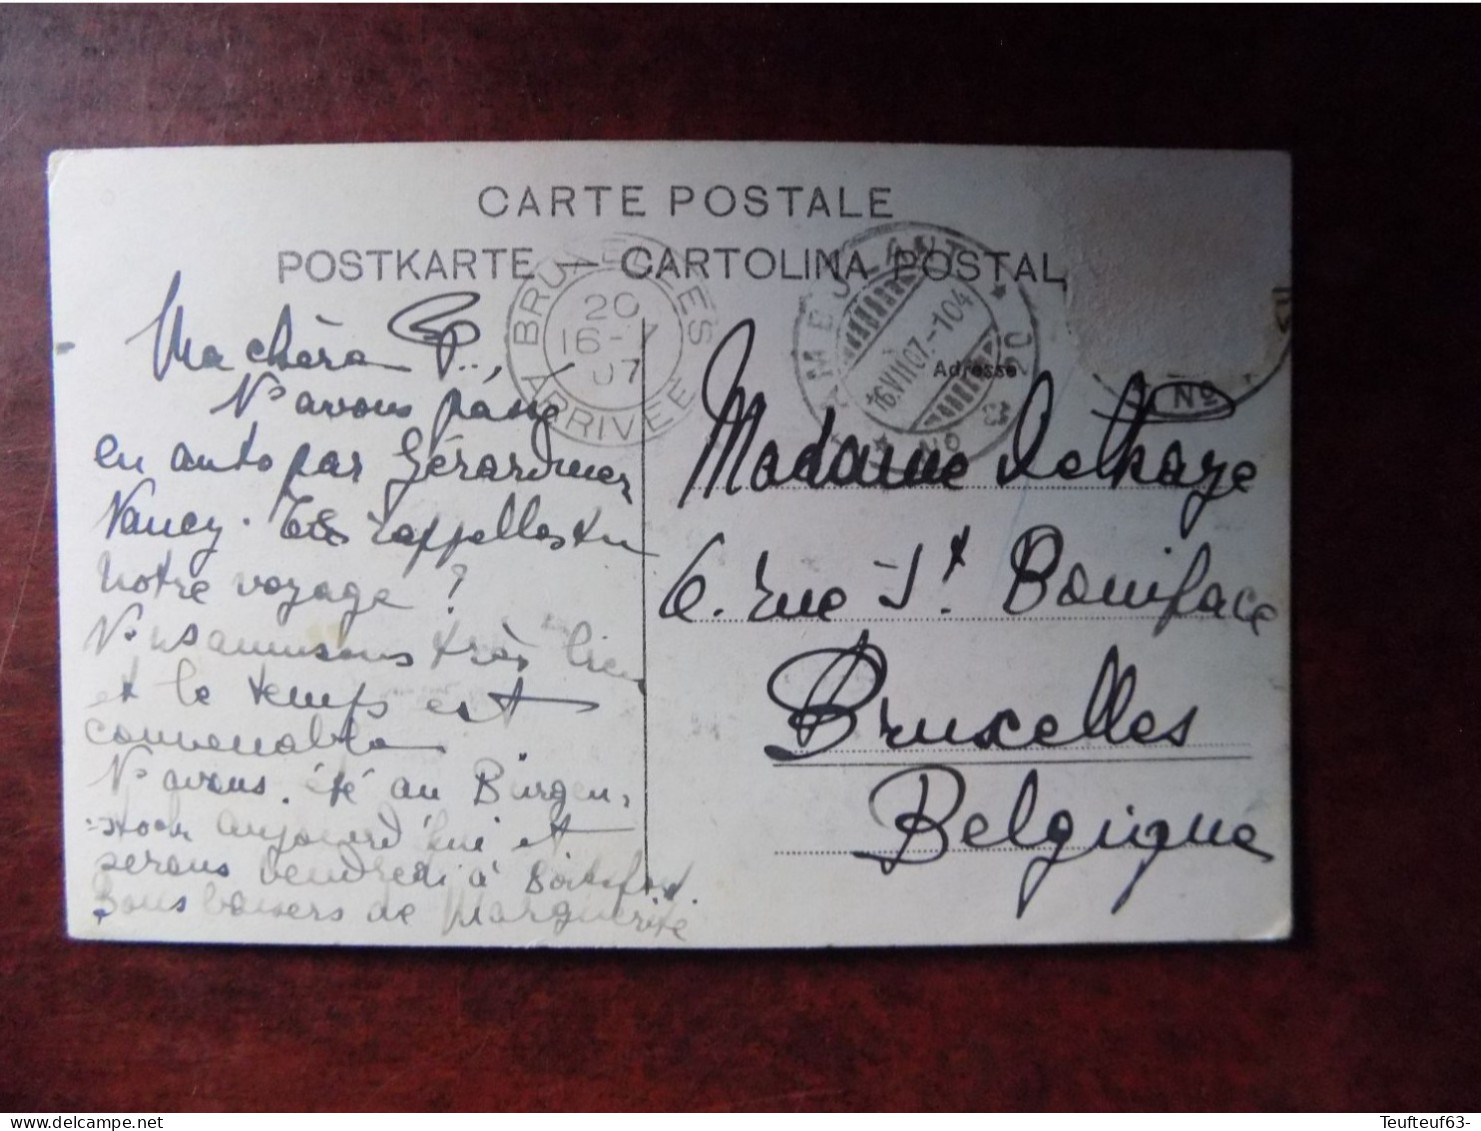 CARTE POSTALE
POSTKARTE — CARTOLINA POSTAL
BRUXELLES
20
16-7
07
ARRIVEE
AMBULANT
16.VII.07.-104
No
Adresse
No
Ma chère
Ns avons passé
en auto par Gérardmer
Nancy. Te rappelles tu
notre voyage ?
Ns ns amusons très bien
et le temps est
convenable
Ns avons été au Bürgen-
-stock aujourd'hui et
serons vendredi à Boitsfort.
Bons baisers de Marguerite
Madame Delhaye
6. rue St. Boniface
Bruxelles
Belgique
Teufteuf63-